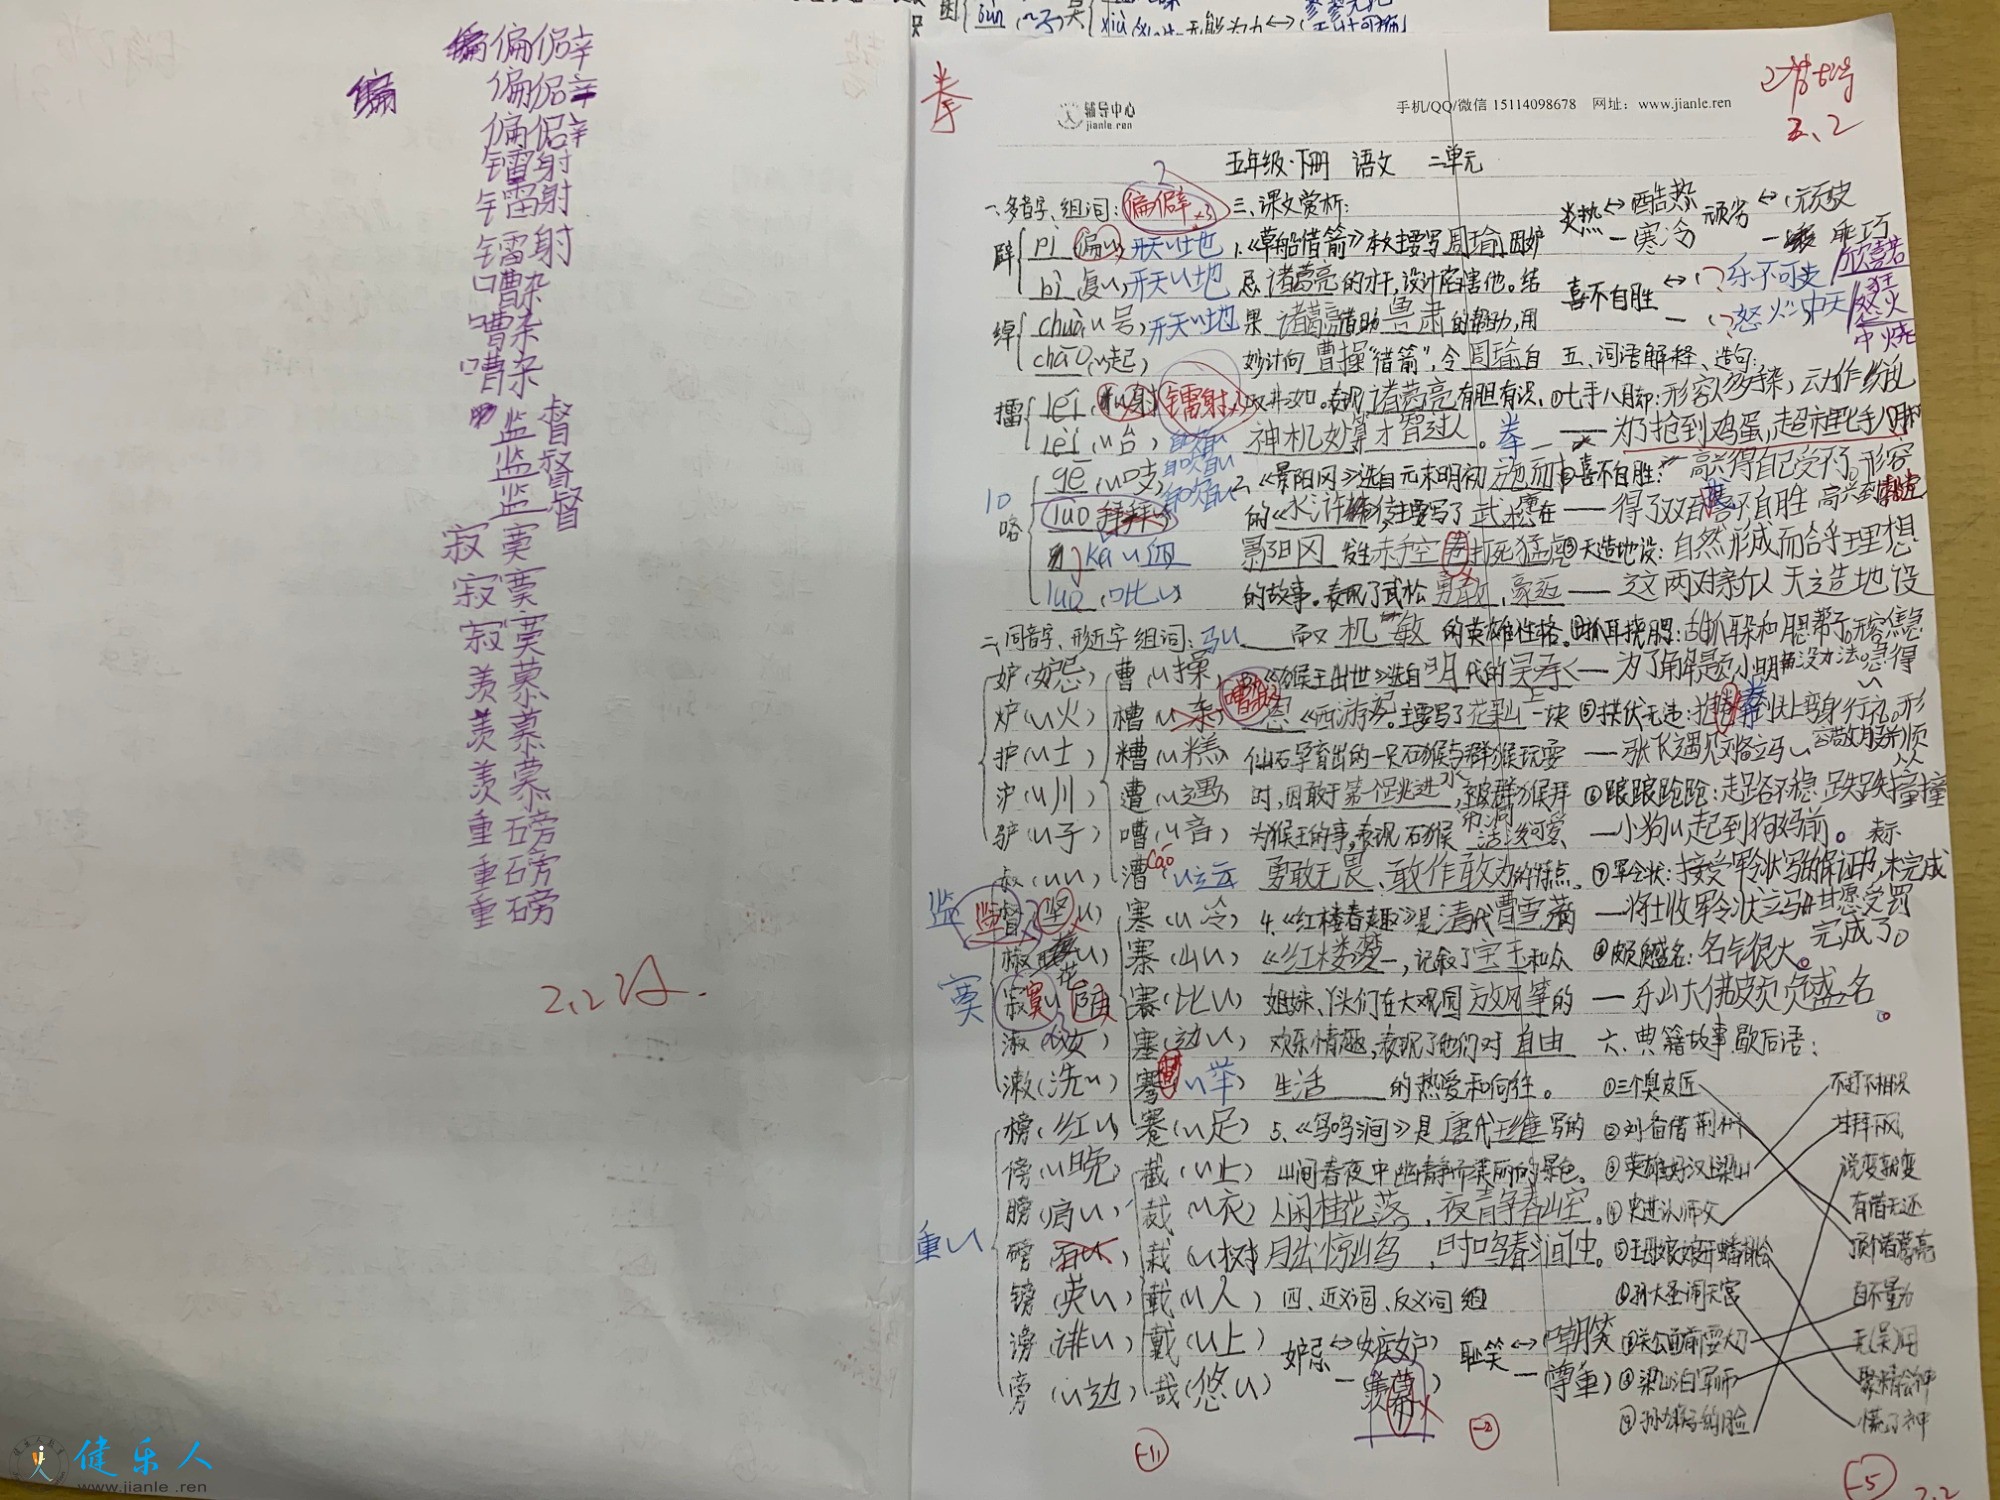 编 偏僻
编 偏僻
偏僻
镭射
镭射
镭射
嘈杂
嘈杂
嘈杂
监督
监督
监督
寂寞
寂寞
寂寞
羡慕
羡慕
羡慕
重磅
重磅
重磅
2.22
拳
辅导中心
jianle.ren
手机/QQ/微信 15114098678 网址：www.jianle.ren
2.2
五年级·下册 语文 二单元
一、多音字、组词：
偏僻 x3
辟 pì (偏u) 开天u地
bì 复u, 开天u地
绰 chuò u号, 开天u地
chāo (u起)
擂 léi 镭射
lèi (u台)
10
咯 gē (u吱)
luò
kǎ u血
luo (吡u)
二、同音字、形近字组词：
妒 (妒忌)
炉 (u火)
护 (u士)
沪 (u川)
驴 (u子)
叔 (uu)
监 督 (坚u)
椒
寞 寂寞
淑 (u女)
漱 (洗u)
榜 (红u)
傍 (u晚)
膀 (肩u)
重u 磅
镑 (英u)
谤 (诽u)
旁 (u边)
曹 (u操)
槽 (u杂)
糟 (u糕)
遭 (u遇)
嘈 (u音)
漕 cáo u运
寒 (u冷)
寨 (山u)
赛 (比u)
塞 (边u)
骞 (u举)
蹇 (u足)
截 (u止)
裁 (u衣)
栽 (u树)
载 (u人)
戴 (u上)
哉 (悠u)
三、课文赏析：
1.《草船借箭》本文主要写周瑜因妒
忌诸葛亮的才干,设计陷害他。结
果诸葛亮借助鲁肃的帮助,用
妙计向曹操“借箭”,令周瑜自
叹弗如。表现诸葛亮有胆有识、
神机妙算才智过人。
2、《景阳冈》选自元末明初施耐庵
的《水浒传》,主要写了武松在
景阳冈发生赤手空拳打死猛虎
的故事。表现了武松勇敢、豪迈
而又机敏的英雄性格。
3、《猴王出世》选自明代的吴承
恩《西游记》。主要写了花果山上一块
仙石孕育出的一只石猴与群猴玩耍
时,因敢于第一个跳进水帘洞,被群猴拜
为猴王的事,表现石猴活泼可爱、
勇敢无畏、敢作敢为的特点。
4.《红楼春趣》是清代曹雪芹
《红楼梦》,记叙了宝玉和众
姐妹、丫头们在大观园放风筝的
欢乐情趣,表现了他们对自由
生活的热爱和向往。
5.《鸟鸣涧》是唐代王维写的
山间春夜中幽静而美丽的景色。
人闲桂花落,夜静春山空。
月出惊山鸟,时鸣春涧中。
四、近义词、反义词组
妒忌↔(嫉妒)
—(羡慕)
耻笑↔(嘲笑
—尊重)
炎热↔酷热
—寒冷
顽劣↔(顽皮
—乖巧
喜不自胜↔(乐不可支 欣喜若狂
—(怒火中天 怒火中烧
五、词语解释、造句：
①七手八脚:形容人多手杂,动作纷乱
——为了抢到鸡蛋,超市里七手八脚
②喜不自胜:高兴得自己受不了。形容高兴到极点
——得了双百喜不自胜
③天造地设:自然形成而合乎理想
——这两对亲人天造地设
④抓耳挠腮:
——为了解题,小明
⑤拱伏无违:
——张飞遇见刘备立马u
⑥踉踉跄跄:走路不稳,跌跌撞撞
——小狗u起到狗妈前。
⑦军令状:接受军令状写的保证书,表示未完成甘愿受罚
——将士收军令状立马完成了。
⑧颇负盛名:名气很大。
——乐山大佛颇负盛名。
六、典籍故事歇后语：
①三个臭皮匠
②刘备借荆州
③英雄好汉上梁山
④史进认师父
⑤王母娘娘开蟠桃会
⑥孙大圣闹天宫
⑦关公面前耍大刀
⑧梁山泊军师
⑨孙猴子的脸
不打不相识
甘拜下风
说变就变
有借无还
顶个诸葛亮
自不量力
无(吴)用
聚精会神
慌了神
-11
-2
-5
2.2
健乐人
www.jianle.ren